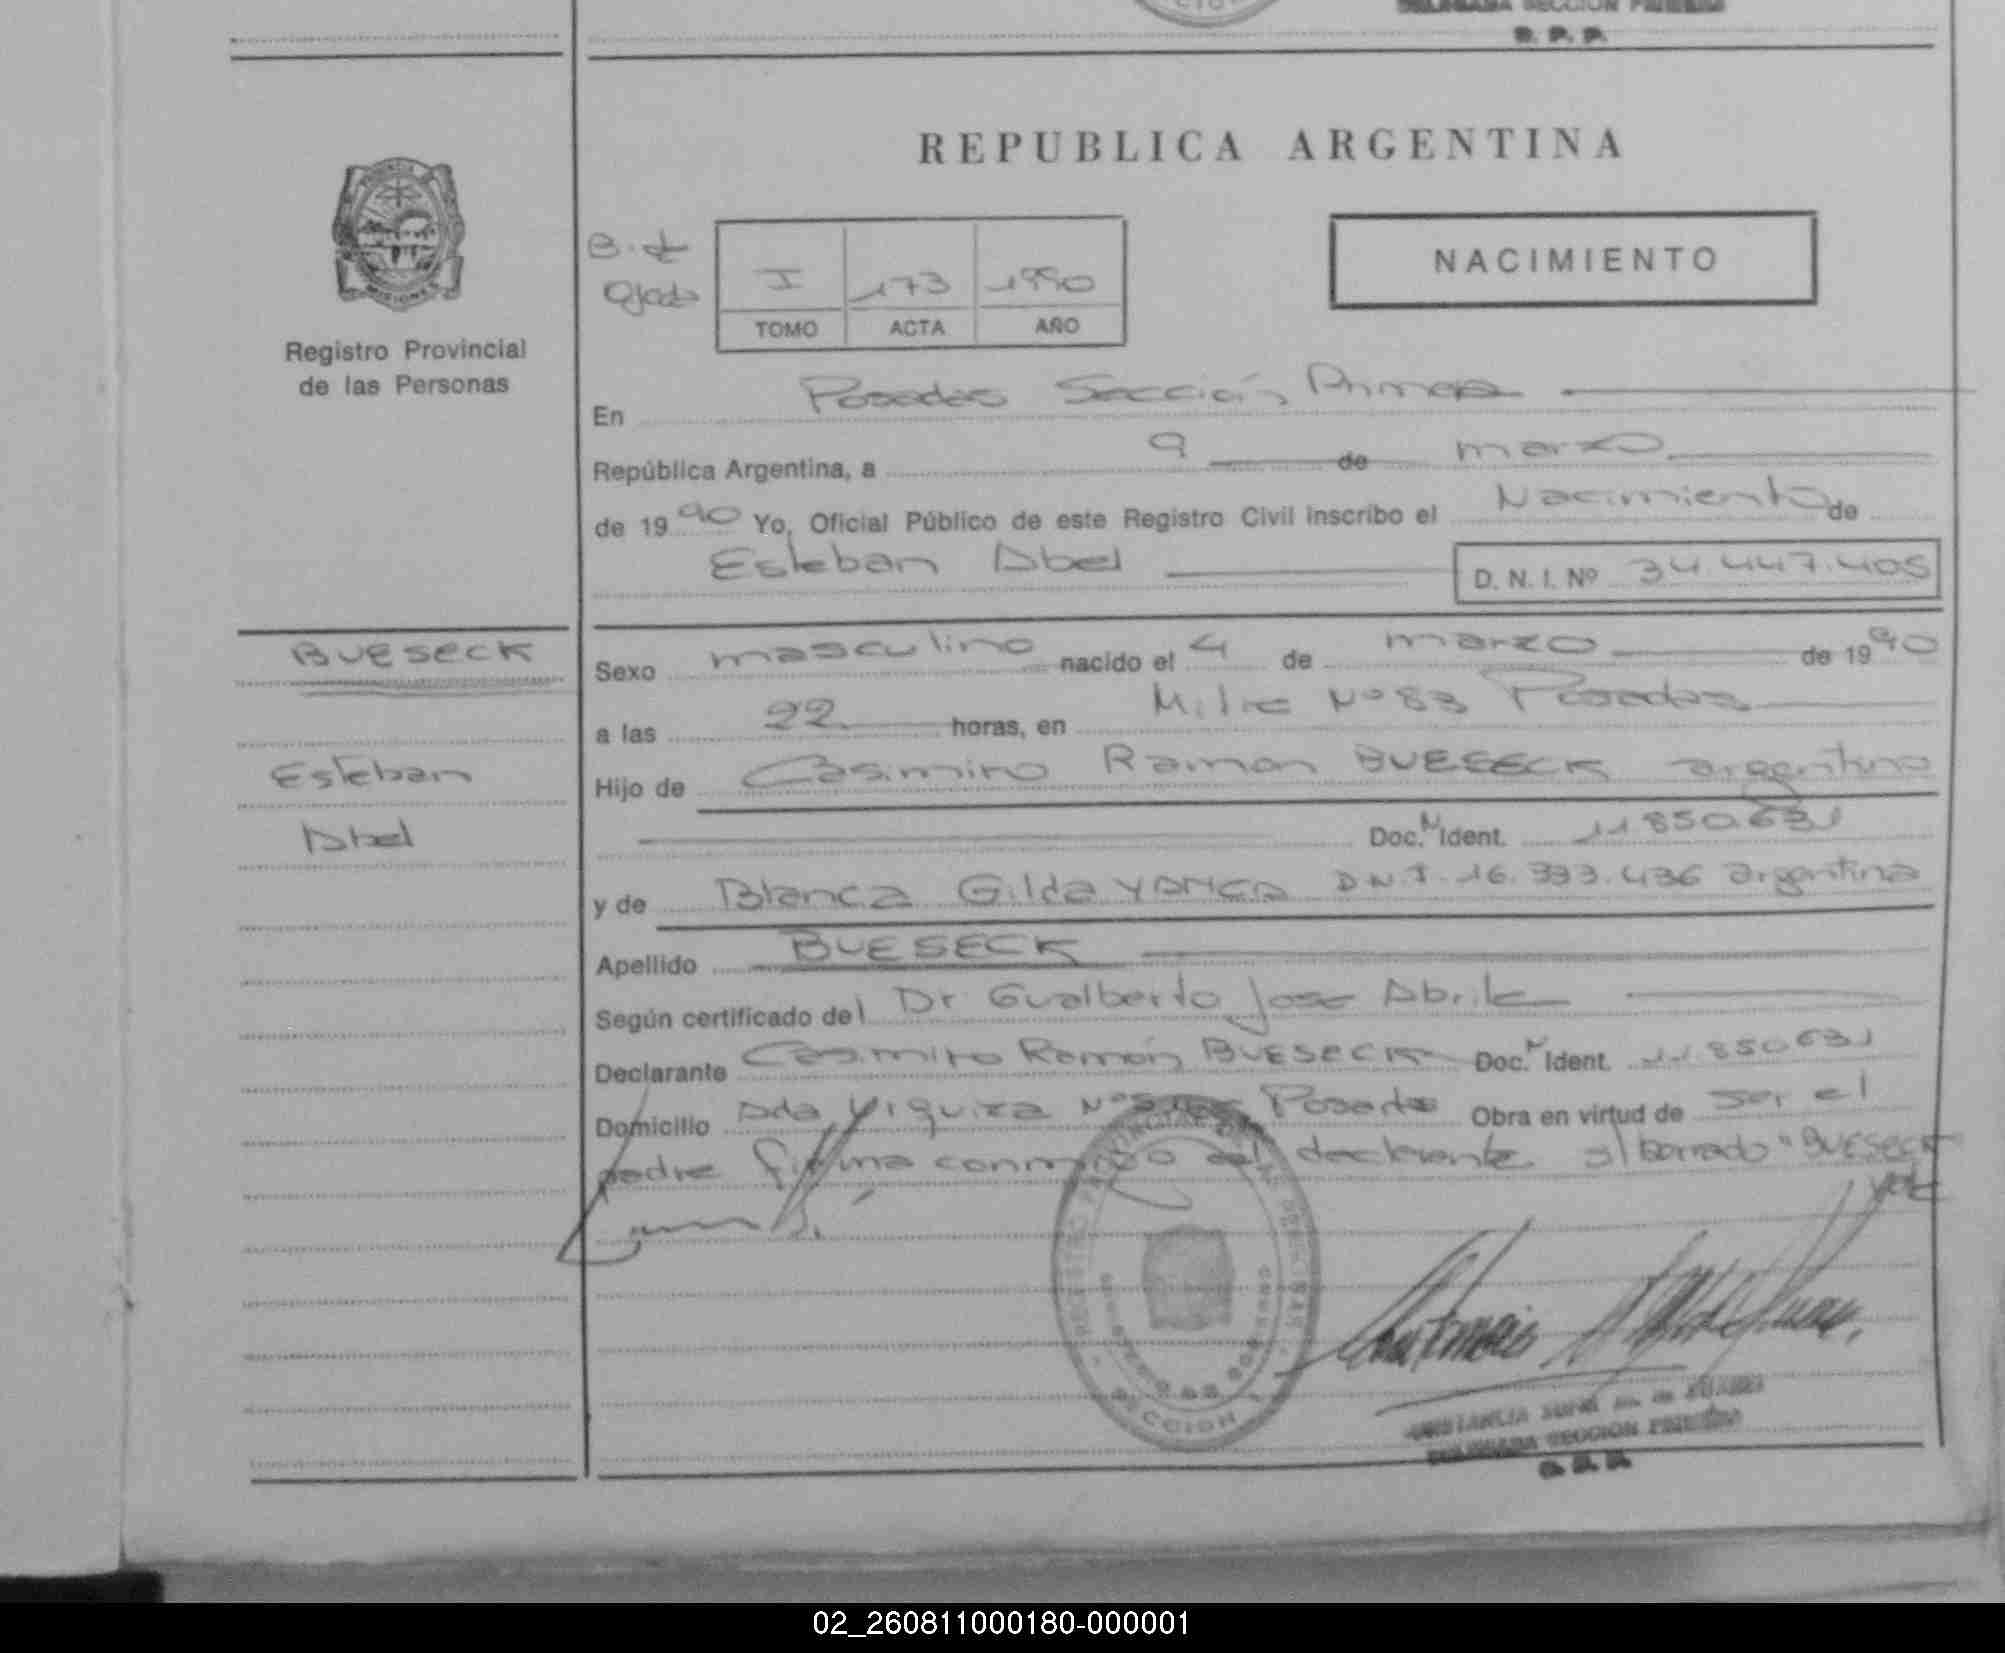 D. P. P.
REPUBLICA ARGENTINA
NACIMIENTO
I 173 1990
TOMO ACTA AÑO
MISIONES
Registro Provincial
de las Personas
En Posadas Sección Primera
República Argentina, a 9 de marzo
de 1990 Yo, Oficial Público de este Registro Civil inscribo el Nacimiento de
Esteban Abel D. N. I. Nº 34.447.405
BUESECK
Esteban
Abel
Sexo masculino nacido el 4 de marzo de 1990
a las 22 horas, en Nº 83 Posadas
Hijo de Casimiro Ramon BUESECK argentino
Doc. N Ident. 11.850.631
y de Blanca Gilda D.N.I. 16.393.436 argentina
Apellido BUESECK
Según certificado del Dr Gualberto Jose
Declarante Casimiro Ramón BUESECK Doc. N Ident. 11.850.631
Domicilio Posadas Obra en virtud de ser el
padre firma conmigo el declarante s/borrado "BUESECK"
Vale
SECCION 1
DELEGADA SECCION PRIMERA
02_260811000180-000001